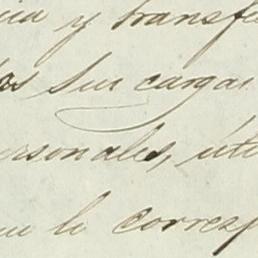 y transf
sus cargas
ersonales, úti
ue le corresp